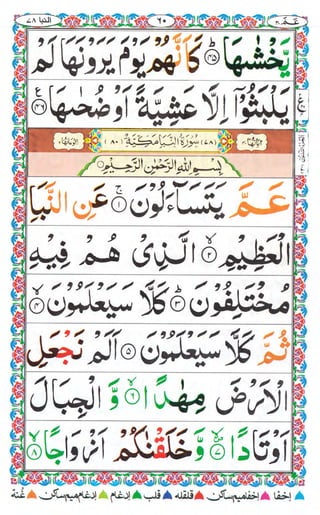 عَمَّ ٣٠ النبا ٧٨
يَّخْشٰىهَا ۝٤٥ كَاَنَّهُمْ يَوْمَ يَرَوْنَهَا لَمْ
يَلْبَثُوْۤا اِلَّا عَشِيَّةً اَوْ ضُحٰىهَا ۝٤٦
(٧٨) سُوْرَةُ النَّبَاِ مَكِّيَّةٌ (٨٠)
بِسْمِ اللّٰهِ الرَّحْمٰنِ الرَّحِيْمِ
عَمَّ يَتَسَآءَلُوْنَ ۝١ عَنِ النَّبَاِ
الْعَظِيْمِ ۝٢ الَّذِيْ هُمْ فِيْهِ
مُخْتَلِفُوْنَ ۝٣ كَلَّا سَيَعْلَمُوْنَ ۝٤
ثُمَّ كَلَّا سَيَعْلَمُوْنَ ۝٥ اَلَمْ نَجْعَلِ
الْاَرْضَ مِهٰدًا ۝٦ وَّ الْجِبَالَ
اَوْتَادًا ۝٧ وَّ خَلَقْنٰكُمْ اَزْوَاجًا ۝٨
إخفا إخفا ميم ساكن قلقله قلب إدغام إدغام ميم ساكن غنة